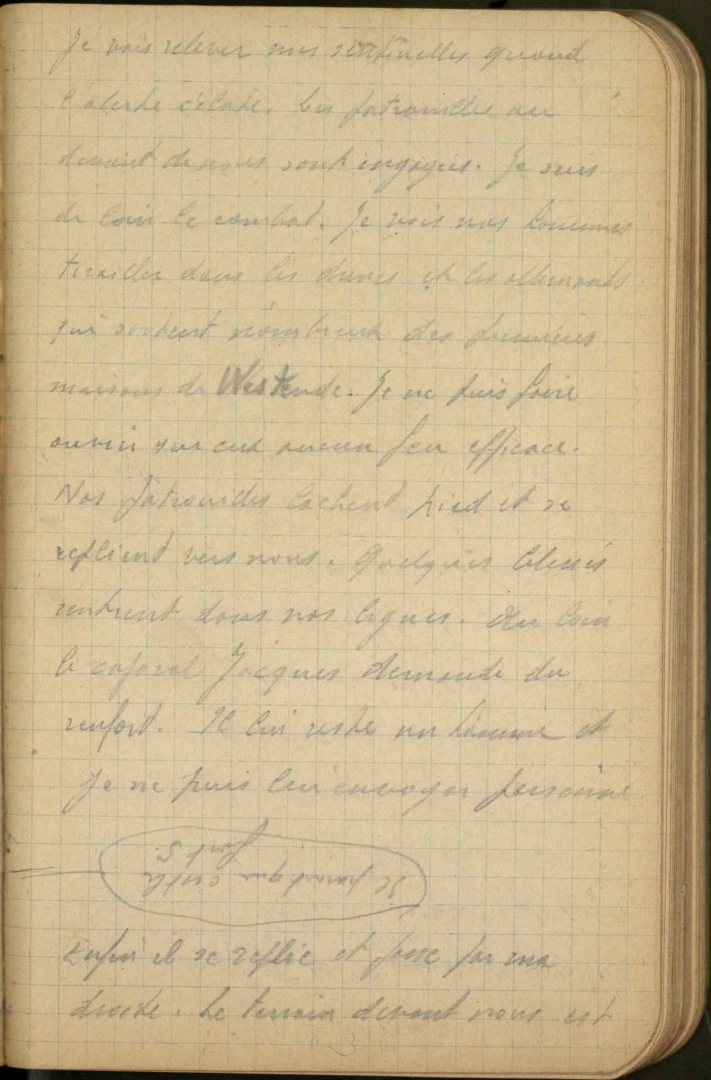 Je vais relever mes sentinelles quand
l'alerte éclate. Les patrouilles au
devant de nous sont engagées. Je suis
de loin le combat. Je vois nos hommes
tirailler dans les dunes et les allemands
qui sortent nombreux des premières
maisons de Westende. Je ne puis faire
ouvrir sur eux aucun feu efficace.
Nos patrouilles lachent pied et se
replient vers nous. Quelques blessés
rentrent dans nos lignes. Au loin
le caporal Jacques demande du
renfort. Il lui reste un homme et
je ne puis lui envoyer personne.
Il parait que c'est le
fort 5.
Enfin il se replie et passe par ma
droite. Le terrain devant nous est